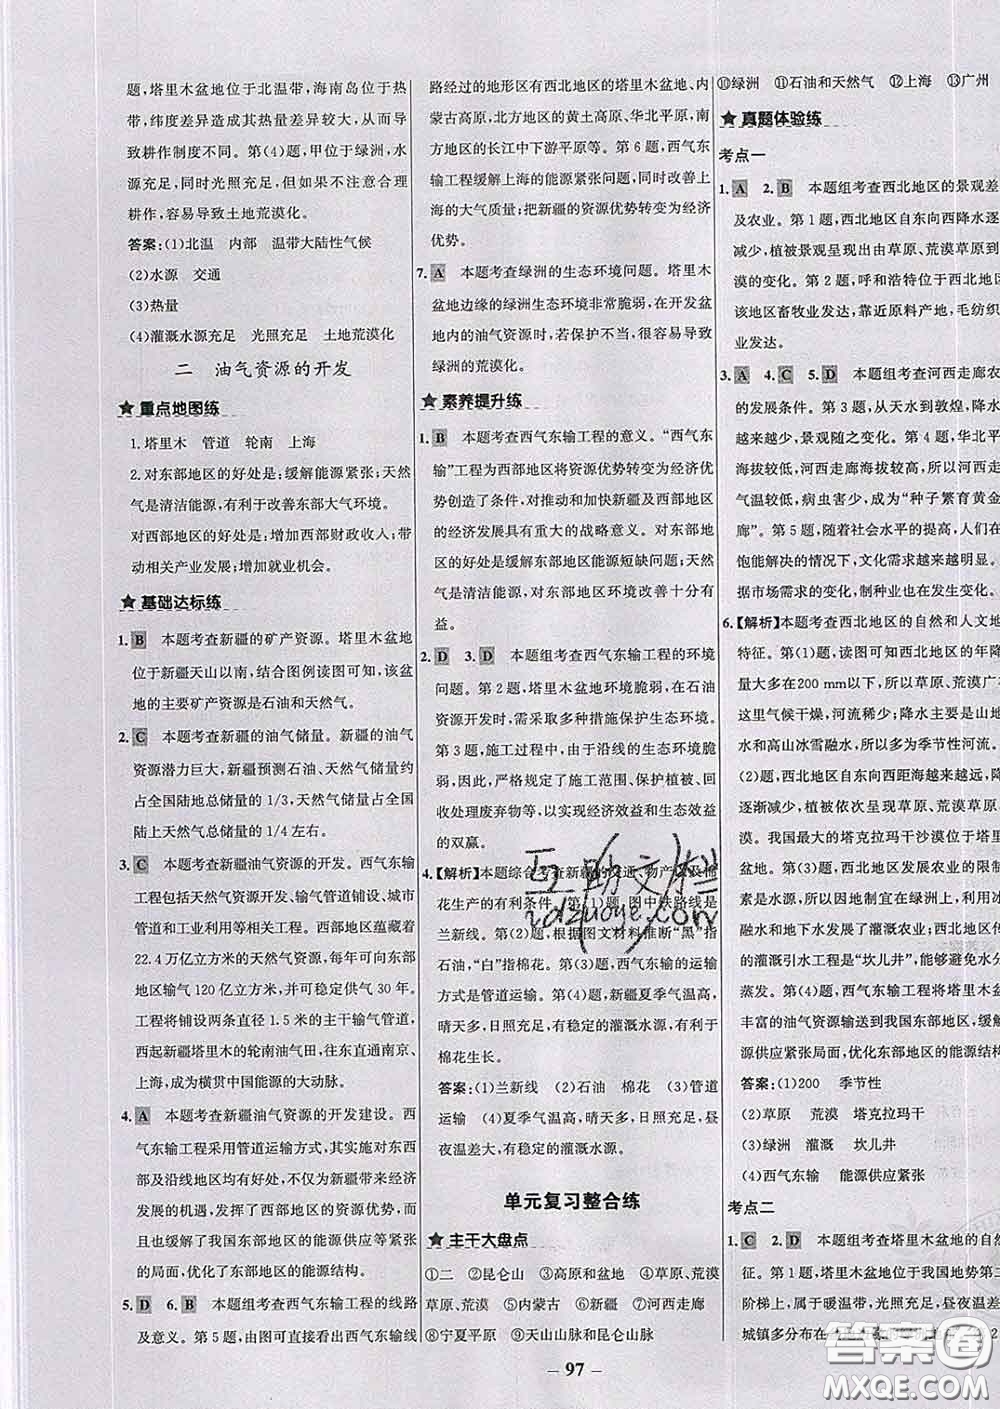 题，塔里木盆地位于北温带，海南岛位于热
带，纬度差异造成的热量差异较大，从而
导致耕作制度不同。第(4)题，甲位于绿洲，水
源充足，同时光照充足，但如果不注意合理
耕作，容易导致土地荒漠化。
答案：(1)北温 内部 温带大陆性气候
(2)水源 交通
(3)热量
(4)灌溉水源充足 光照充足 土地荒漠化
二 油气资源的开发
★重点地图练
1.塔里木 管道 轮南 上海
2.对东部地区的好处是：缓解能源紧张；天然
气是清洁能源，有利于改善东部大气环境。
对西部地区的好处是：增加西部财政收入；带
动相关产业发展；增加就业机会。
★基础达标练
1. B 本题考查新疆的矿产资源。塔里木盆地
位于新疆天山以南，结合图例读图可知，该盆
地的主要矿产资源是石油和天然气。
2. C 本题考查新疆的油气储量。新疆的油气
资源潜力巨大，新疆预测石油、天然气储量约
占全国陆地总储量的1/3，天然气储量占全国
陆上天然气总储量的1/4左右。
3. C 本题考查新疆油气资源的开发。西气东输
工程包括天然气资源开发、输气管道铺设、城市
管道和工业利用等相关工程。西部地区蕴藏着
22.4万亿立方米的天然气资源，每年可向东部
地区输气120亿立方米，可稳定供气30年。
工程将铺设两条直径1.5米的主干输气管道，
西起新疆塔里木的轮南油气田，往东直通南京、
上海，成为横贯中国能源的大动脉。
4. A 本题考查新疆油气资源的开发建设。西
气东输工程采用管道运输方式，其实施对东西
部及沿线地区均有好处，不仅为新疆带来经济
发展的机遇，发挥了西部地区的资源优势，而
且缓解了我国东部地区的能源供应等紧张的
局面，优化了东部地区的能源结构。
5. D 6. B 本题组考查西气东输工程的线路
及意义。第5题，由图可直接看出西气东输线
路经过的地形区有西北地区的塔里木盆地、内
蒙古高原，北方地区的黄土高原、华北平原，
南方地区的长江中下游平原等。第6题，西气东
输工程缓解上海的能源紧张问题，同时改善上
海的大气质量；把新疆的资源优势转变为经济
优势。
7. A 本题考查绿洲的生态环境问题。塔里木
盆地边缘的绿洲生态环境非常脆弱，在开发盆
地内的油气资源时，若保护不当，很容易导致
绿洲的荒漠化。
★素养提升练
1. B 本题考查西气东输工程的意义。“西气东
输”工程为西部地区将资源优势转变为经济优
势创造了条件，对推动和加快新疆及西部地区
的经济发展具有重大的战略意义。对东部地
区的好处是缓解东部地区能源短缺问题；天然
气是清洁能源，对东部地区环境改善十分有
益。
2. D 3. D 本题组考查西气东输工程的环境
问题。第2题，塔里木盆地环境脆弱，在石油
资源开发时，需采取多种措施保护生态环境。
第3题，施工过程中，由于沿线的生态环境脆
弱，因此，严格规定了施工范围、保护植被、
回收处理废弃物等，以实现经济效益和生态效益
的双赢。
4.【解析】本题综合考查新疆的交通、物产以及棉
花生产的有利条件。第(1)题，图中铁路线是
兰新线。第(2)题，根据图文材料推断“黑”指
石油，“白”指棉花。第(3)题，西气东输的运输
方式是管道运输。第(4)题，新疆夏季气温高，
晴天多，日照充足，有稳定的灌溉水源，有利于
棉花生长。
答案：(1)兰新线 (2)石油 棉花 (3)管道
运输 (4)夏季气温高，晴天多，日照充足，昼
夜温差大，有稳定的灌溉水源。
单元复习整合练
★主干大盘点
①二 ②昆仑山 ③高原和盆地 ④草原、荒漠
草原、荒漠 ⑤内蒙古 ⑥新疆 ⑦河西走廊
⑧宁夏平原 ⑨天山山脉和昆仑山脉
⑩绿洲 ⑪石油和天然气 ⑫上海 ⑬广州
★真题体验练
考点一
1. A 2. B 本题组考查西北地区的景观差
及农业。第1题，西北地区自东向西降水逐
减少，植被景观呈现出由草原、荒漠草原到
漠的变化。第2题，呼和浩特位于西北地区
该地区畜牧业发达，靠近原料产地，毛纺织
业发达。
3. A 4. C 5. D 本题组考查河西走廊农
的发展条件。第3题，从天水到敦煌，降水
越来越少，景观随之变化。第4题，华北平
海拔较低，河西走廊海拔较高，所以华北平
气温较高，病虫害少，成为“种子繁育黄金
廊”。第5题，随着社会水平的提高，人们在
饱能解决的情况下，文化需求越来越明显。
据市场需求的变化，制种业也在发生变化。
6.【解析】本题考查西北地区的自然和人文地
特征。第(1)题，读图可知西北地区的年降
量大多在200 mm以下，所以草原、荒漠广布
这里气候干燥，河流稀少；降水主要是山地
和高山冰雪融水，所以多为季节性河流。
(2)题，西北地区自东向西距海越来越远，降
逐渐减少，植被依次呈现出草原、荒漠草原、
漠。我国最大的塔克拉玛干沙漠位于塔里
盆地。第(3)题，西北地区发展农业的限制
素是水源，所以因地制宜在绿洲处，利用冰
融水和地下水，发展了灌溉农业。西北地区传
的灌溉引水工程是“坎儿井”，能够避免水分
蒸发。第(4)题，西气东输工程将塔里木盆
丰富的油气资源输送到我国东部地区，缓解
源供应紧张局面，优化东部地区的能源结构
答案：(1)200 季节性
(2)草原 荒漠 塔克拉玛干
(3)绿洲 灌溉 坎儿井
(4)西气东输 能源供应紧张
考点二
1. C 2. D 本题组考查塔里木盆地的自然
征。第1题，塔里木盆地位于我国地势第二
阶梯上，属于暖温带，光照充足，昼夜温差
城镇多分布在
– 97 –
互助文档
zdzuoye.com
答案圈
MXQE.COM